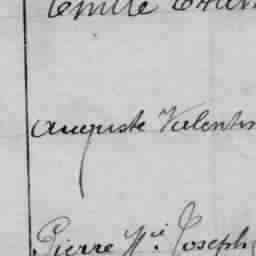 Emile
Auguste Valentin
Pierre Mie. Joseph